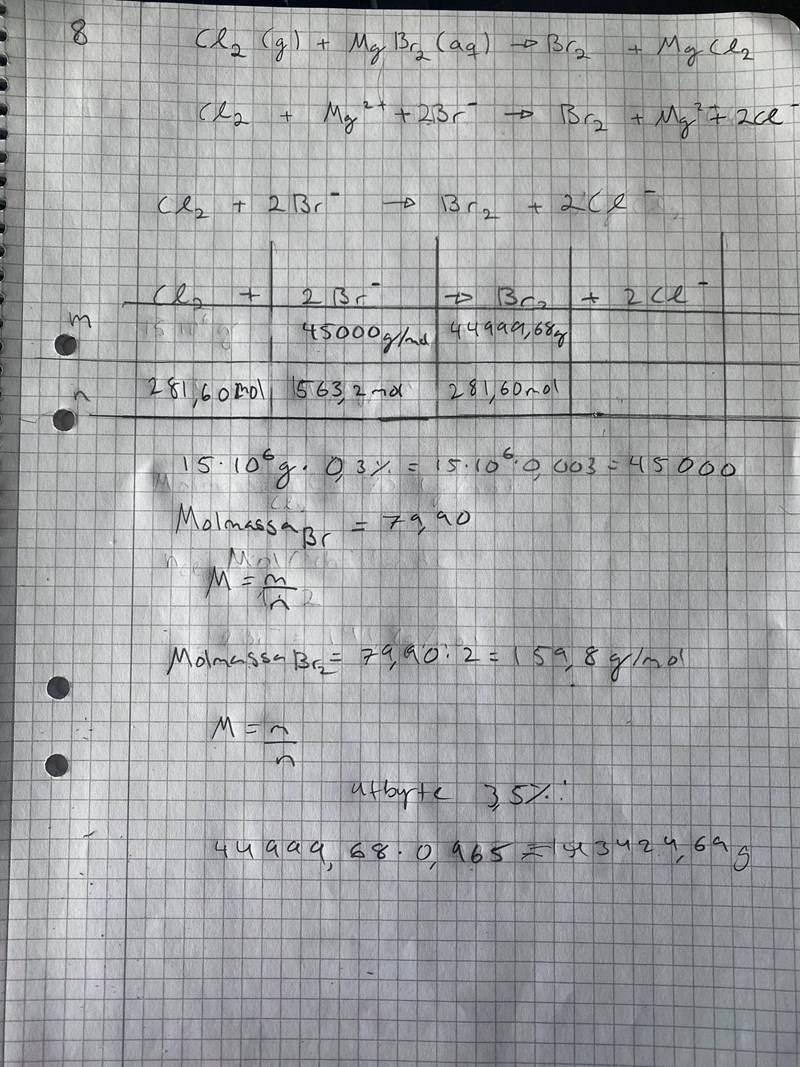 8 Cl₂ (g) + MgBr₂ (aq) → Br₂ + MgCl₂
Cl₂ + Mg²⁺ + 2Br⁻ → Br₂ + Mg²⁺ + 2Cl⁻
Cl₂ + 2Br⁻ → Br₂ + 2Cl⁻
Cl₂ + 2Br⁻ → Br₂ + 2Cl⁻
m 45000g/mol 44999,68g
n 281,60mol 563,2mol 281,60mol
15·10⁶g · 0,3% = 15·10⁶·0,003 = 45000
Molmassa Br = 79,90
M = m/n
Molmassa Br₂ = 79,90·2 = 159,8 g/mol
M = m/n
utbyte 3,5%:
44999,68·0,965 = 43424,69g